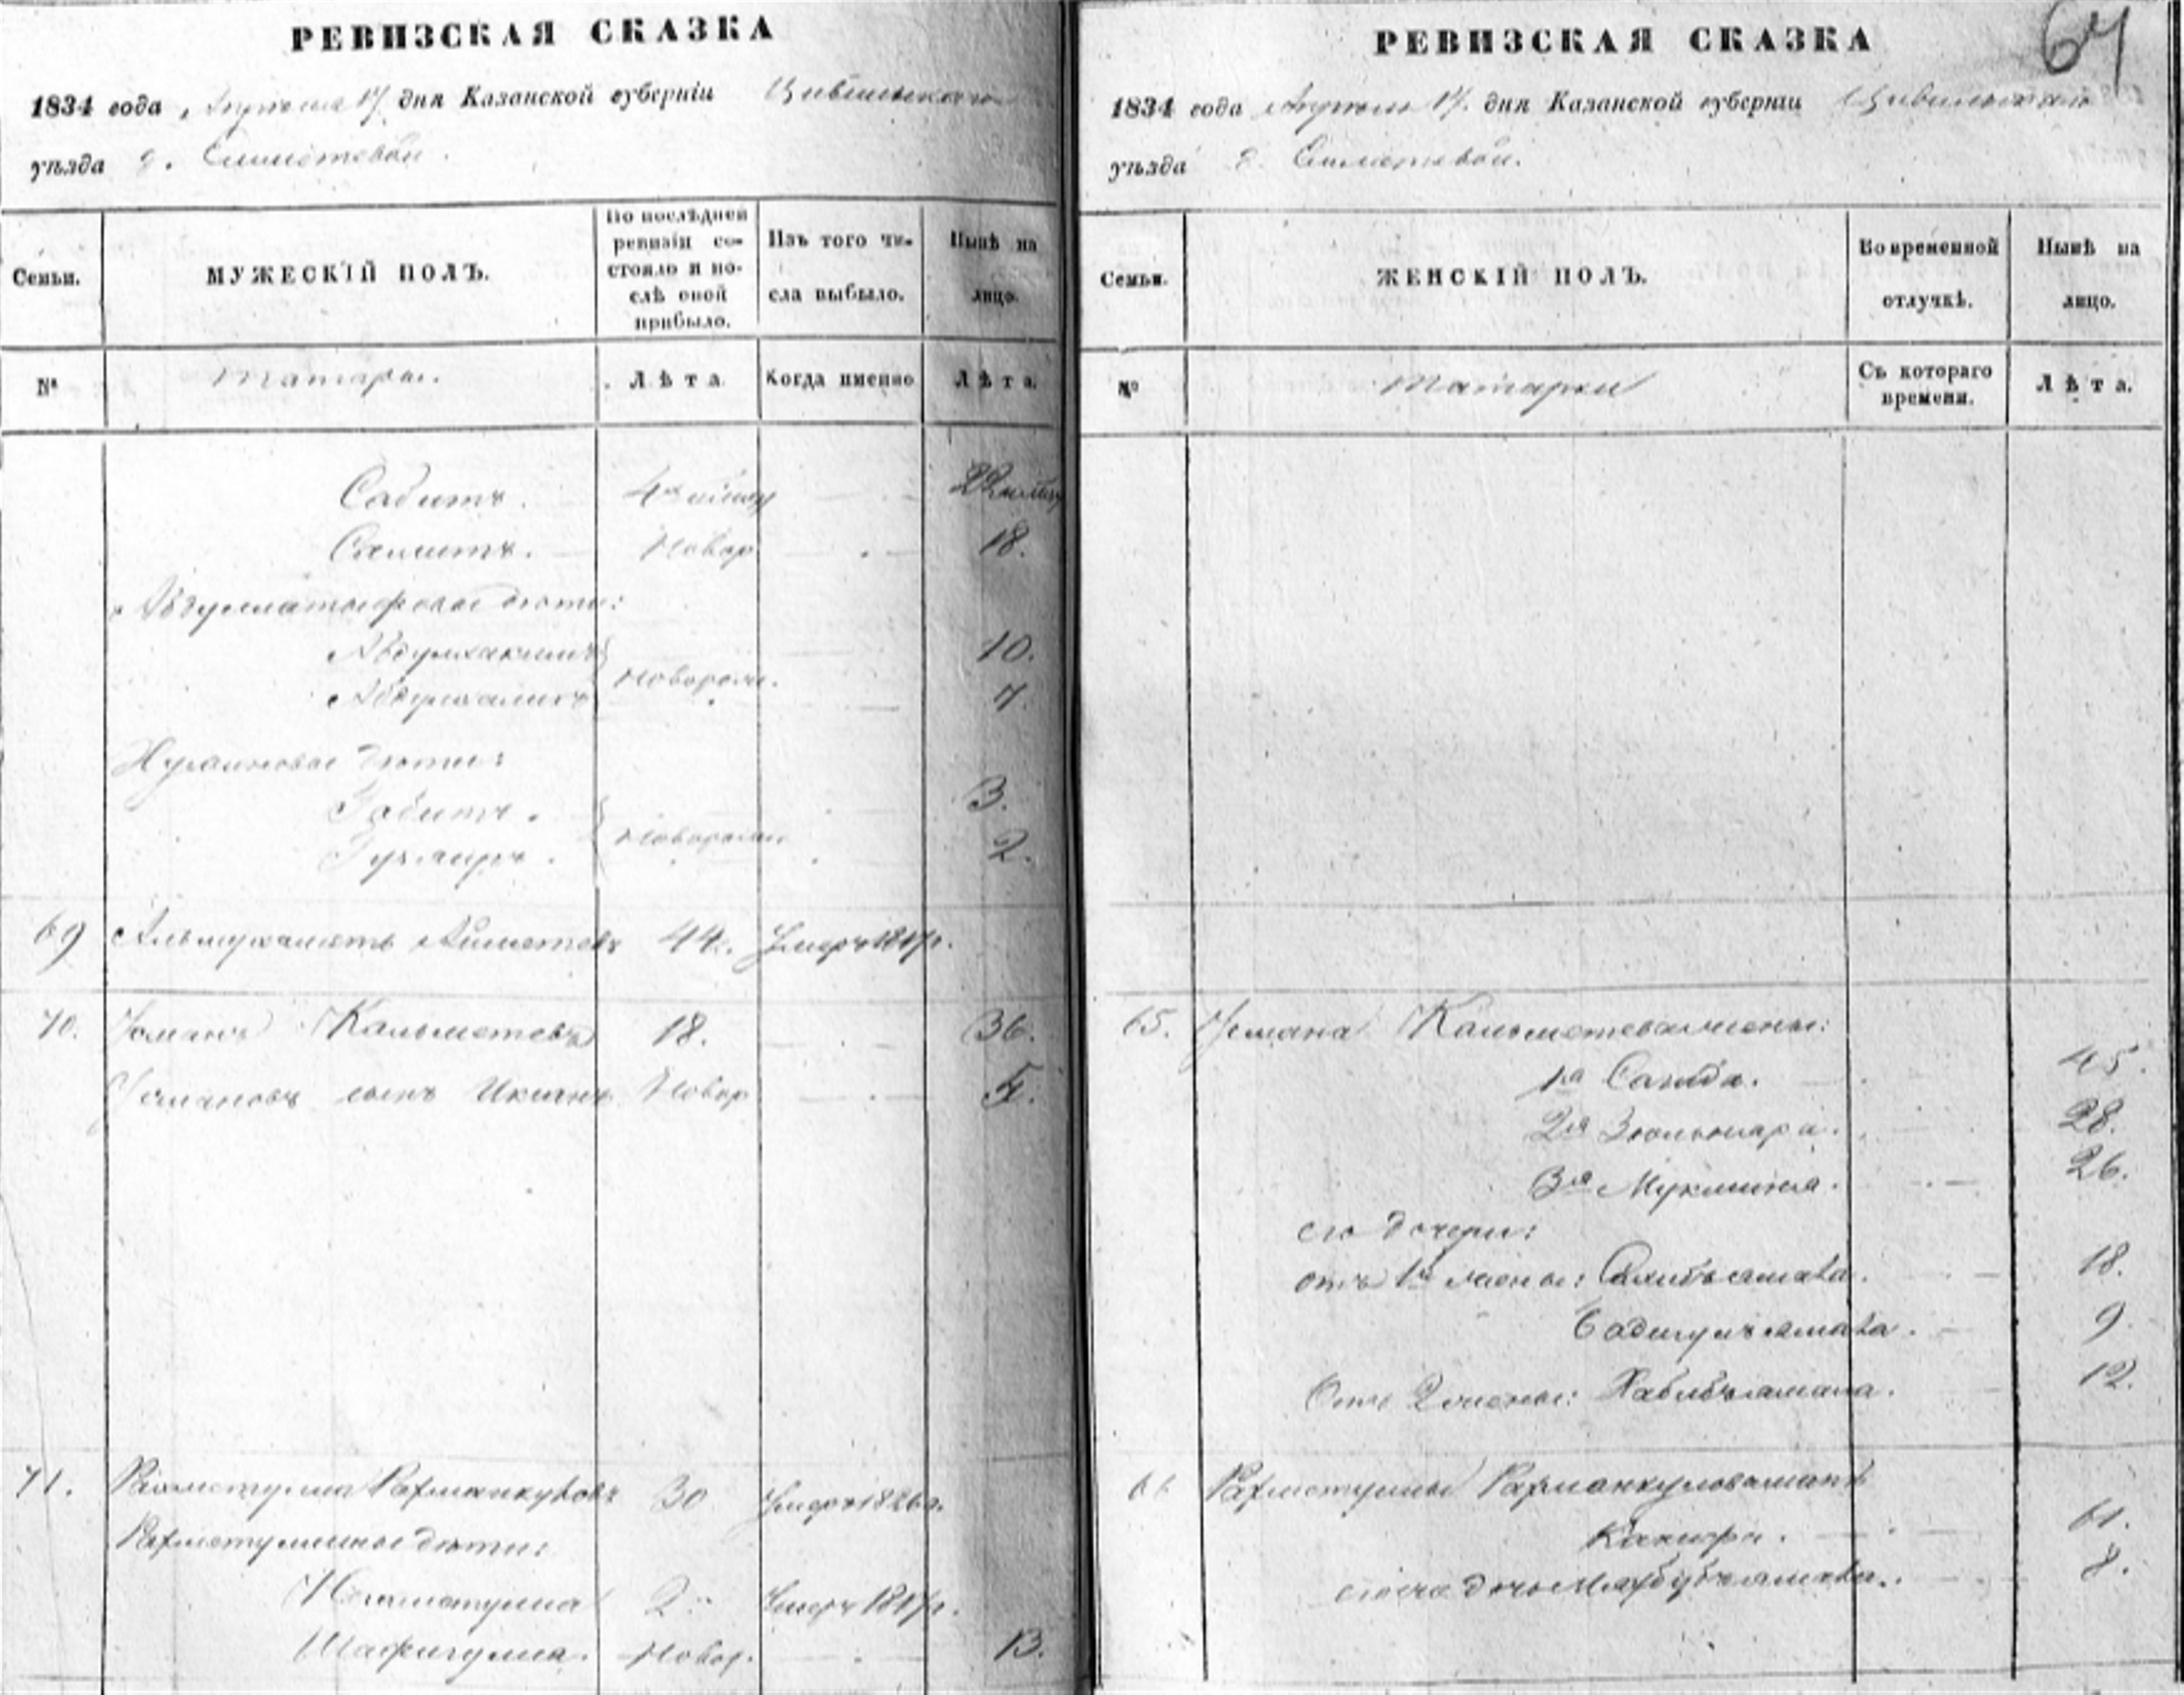 РЕВИЗСКАЯ СКАЗКА
1834 года Апреля 17 дня Казанской губерніи Цивильскаго
уѣзда д.
Семьи.
МУЖЕСКІЙ ПОЛЪ.
По послѣдней ревизіи со-
стояло и по-
слѣ оной
прибыло.
Изъ того чи-
сла выбыло.
Нынѣ на
лицо.
№
Татары.
Лѣта.
Когда именно
Лѣта.
Сабитъ. 22
Самитъ. Новор. 18.
дѣти:
Абдулхакимъ 10.
Новорож.
Абдулхаликъ 7.
дѣти:
Габитъ. 3.
Новорож.
2.
69 Альмухаметь 44. Умеръ 1817г.
70. Усманъ Кальметевъ 18. 36.
Усмановъ сынъ Новор. 5.
71. Рахметулла Рахманкуловъ 30 Умеръ 1826г.
Рахметуллины дѣти:
Нигаметулла 2 Умеръ 1817г.
Шафигулла. Новор. 13.
РЕВИЗСКАЯ СКАЗКА
64
1834 года Апреля 17. дня Казанской губерніи Цивильскаго
уѣзда д.
Семьи.
ЖЕНСКІЙ ПОЛЪ.
Во временной
отлучкѣ.
Нынѣ на
лицо.
№
Татарки
Съ котораго
времени.
Лѣта.
65. Усмана Кальметева жены:
1я Саида. 45.
2я Зюльнара. 28.
3я Мукмина. 26.
его дочери:
отъ 1й жены: 18.
Бадигулъямала. 9.
Отъ 2 жены: Хабибъямала. 12.
66 Рахметуллы Рахманкулова жена
61.
его дочь Махбубъямала. 8.